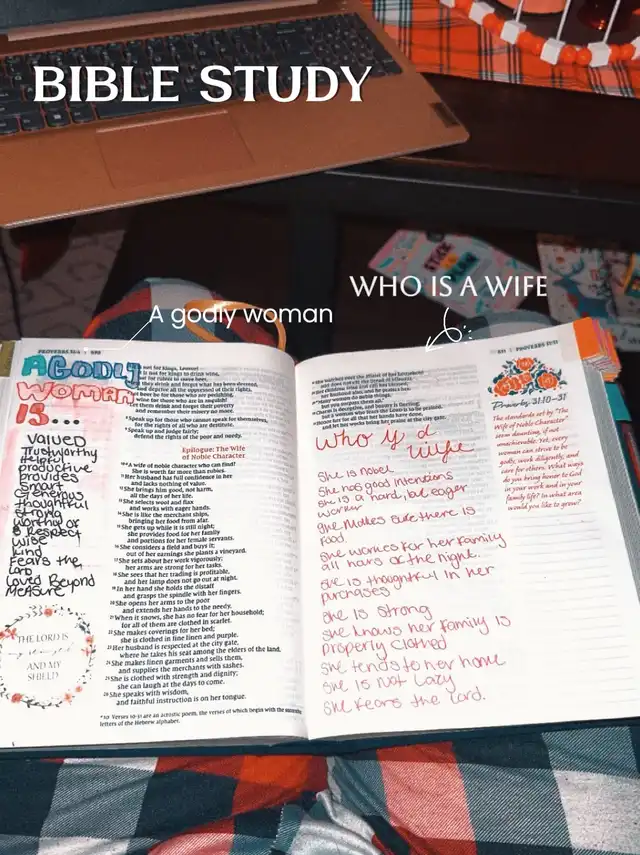 BIBLE STUDY
WHO IS A WIFE
A godly woman
PROVERBS 31:4
A GODLY
WOMAN
IS...
VALUED
Trustworthy
Helpful
productive
provides
Smart
Generous
thoughtful
Strong
worthy of
Respect
wise
kind
Fears the
Lord
Loved Beyond
Measure
THE LORD IS
my strength
AND MY
SHIELD
not for kings, Lemuel—
it is not for kings to drink wine,
not for rulers to crave beer,
they drink and forget what has been decreed,
and deprive all the oppressed of their rights.
beer be for those who are perishing,
wine for those who are in anguish!
them drink and forget their poverty
and remember their misery no more.
8 Speak up for those who cannot speak for themselves,
for the rights of all who are destitute.
9 Speak up and judge fairly;
defend the rights of the poor and needy.
Epilogue: The Wife
of Noble Character
10 A wife of noble character who can find?
She is worth far more than rubies.
11 Her husband has full confidence in her
and lacks nothing of value.
12 She brings him good, not harm,
all the days of her life.
13 She selects wool and flax
and works with eager hands.
14 She is like the merchant ships,
bringing her food from afar.
15 She gets up while it is still night;
she provides food for her family
and portions for her female servants.
16 She considers a field and buys it;
out of her earnings she plants a vineyard.
17 She sets about her work vigorously;
her arms are strong for her tasks.
18 She sees that her trading is profitable,
and her lamp does not go out at night.
19 In her hand she holds the distaff
and grasps the spindle with her fingers.
20 She opens her arms to the poor
and extends her hands to the needy.
21 When it snows, she has no fear for her household;
for all of them are clothed in scarlet.
22 She makes coverings for her bed;
she is clothed in fine linen and purple.
23 Her husband is respected at the city gate,
where he takes his seat among the elders of the land.
24 She makes linen garments and sells them,
and supplies the merchants with sashes.
25 She is clothed with strength and dignity;
she can laugh at the days to come.
26 She speaks with wisdom,
and faithful instruction is on her tongue.
*10 Verses 10-31 are an acrostic poem, the verses of which begin with the
letters of the Hebrew alphabet.
PROVERBS 31:31
27 She watches over the affairs of her household
and does not eat the bread of idleness.
28 Her children arise and call her blessed;
her husband also, and he praises her:
29 "Many women do noble things,
but you surpass them all."
30 Charm is deceptive, and beauty is fleeting;
but a woman who fears the LORD is to be praised.
31 Honor her for all that her hands have done,
and let her works bring her praise at the city gate.
Who is a
wife
She is noble
She has good intentions
she is a hard, but eager
worker
She makes sure there is
food.
She works for her family
all hours of the night.
She is thoughtful in her
purchases
She is strong
She knows her family is
properly clothed
She tends to her home
She is not lazy
She fears the Lord.
Proverbs 31:10–31
The standards set by "The
Wife of Noble Character"
seem daunting, if not
unachievable. Yet, every
woman can strive to be
godly, work diligently, and
care for others. What ways
do you bring honor to God
in your work and in your
family life? In what area
would you like to grow?